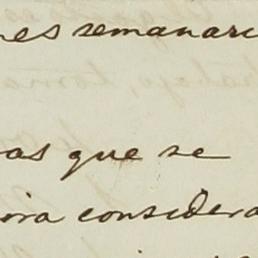 nes semanari
as que se
ira considera